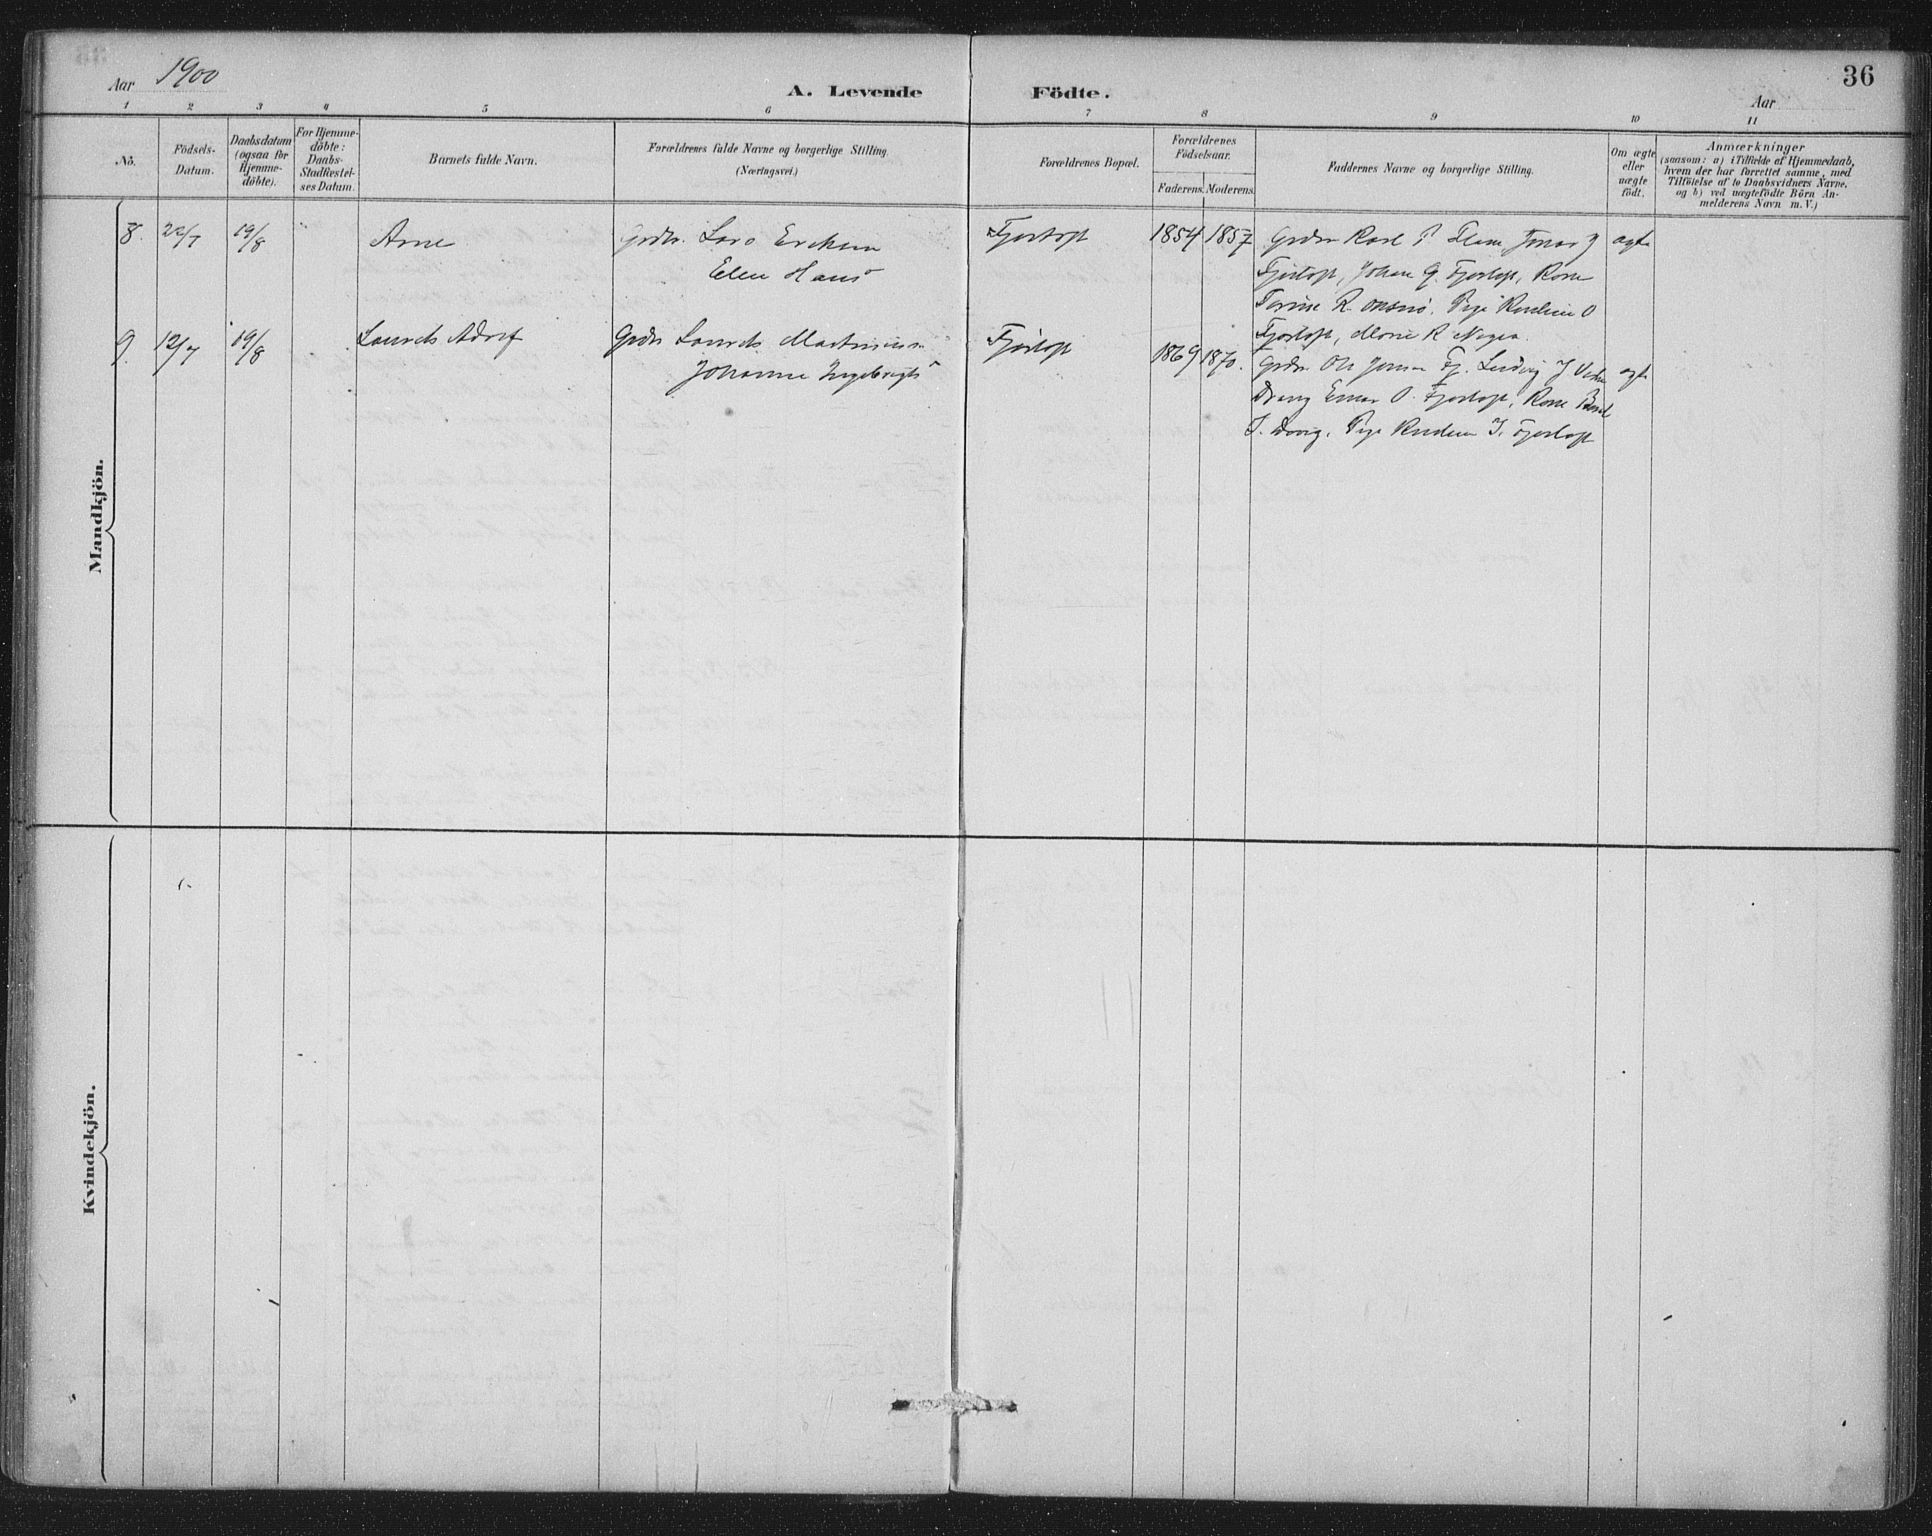 Aar 1900
A. Levende Födte.
36
Aar
1 2 3 4 5 6 7 8 9 10 11
No.
Födsels-
Datum.
Daabsdatum
(ogsaa for
Hjemme-
döbte).
For Hjemme-
döbte:
Daabs-
Stadfæstel-
ses Datum.
Barnets fulde Navn.
Forældrenes fulde Navne og borgerlige Stilling.
(Næringsvei.)
Forældrenes Bopæl.
Forældrenes
Födselsaar.
Faderens. Moderens.
Faddernes Navne og borgerlige Stilling.
Om ægte
eller
uægte
födt.
Anmærkninger
(saasom: a) i Tilfælde af Hjemmedaab,
hvem der har forrettet samme, med
Tilföielse af to Daabsvidners Navne,
og b) ved uægtefödte Börn An-
melderens Navn m. V.)
Mandkjön.
8. 22/7 19/8 Arne Grdbr. Lars Ericksen Fjørtoft 1854 1857 Grdbr Karl P. Flem J. ægte
Elen Hans
Fjørtoft, Johan G. Fjørtoft, Kone
R. Pige O
Fjørtoft, Marie R
9. 12/7 19/8 Laurits Adolf Grdbr Laurits Martinius Fjørtoft 1869 1870. Grdbr Ole Jensen Fj. Ludvig J ægte
Johanne Ingebrigts
O. Fjørtoft, Kone
Pige J. Fjørtoft
Kvindekjön.